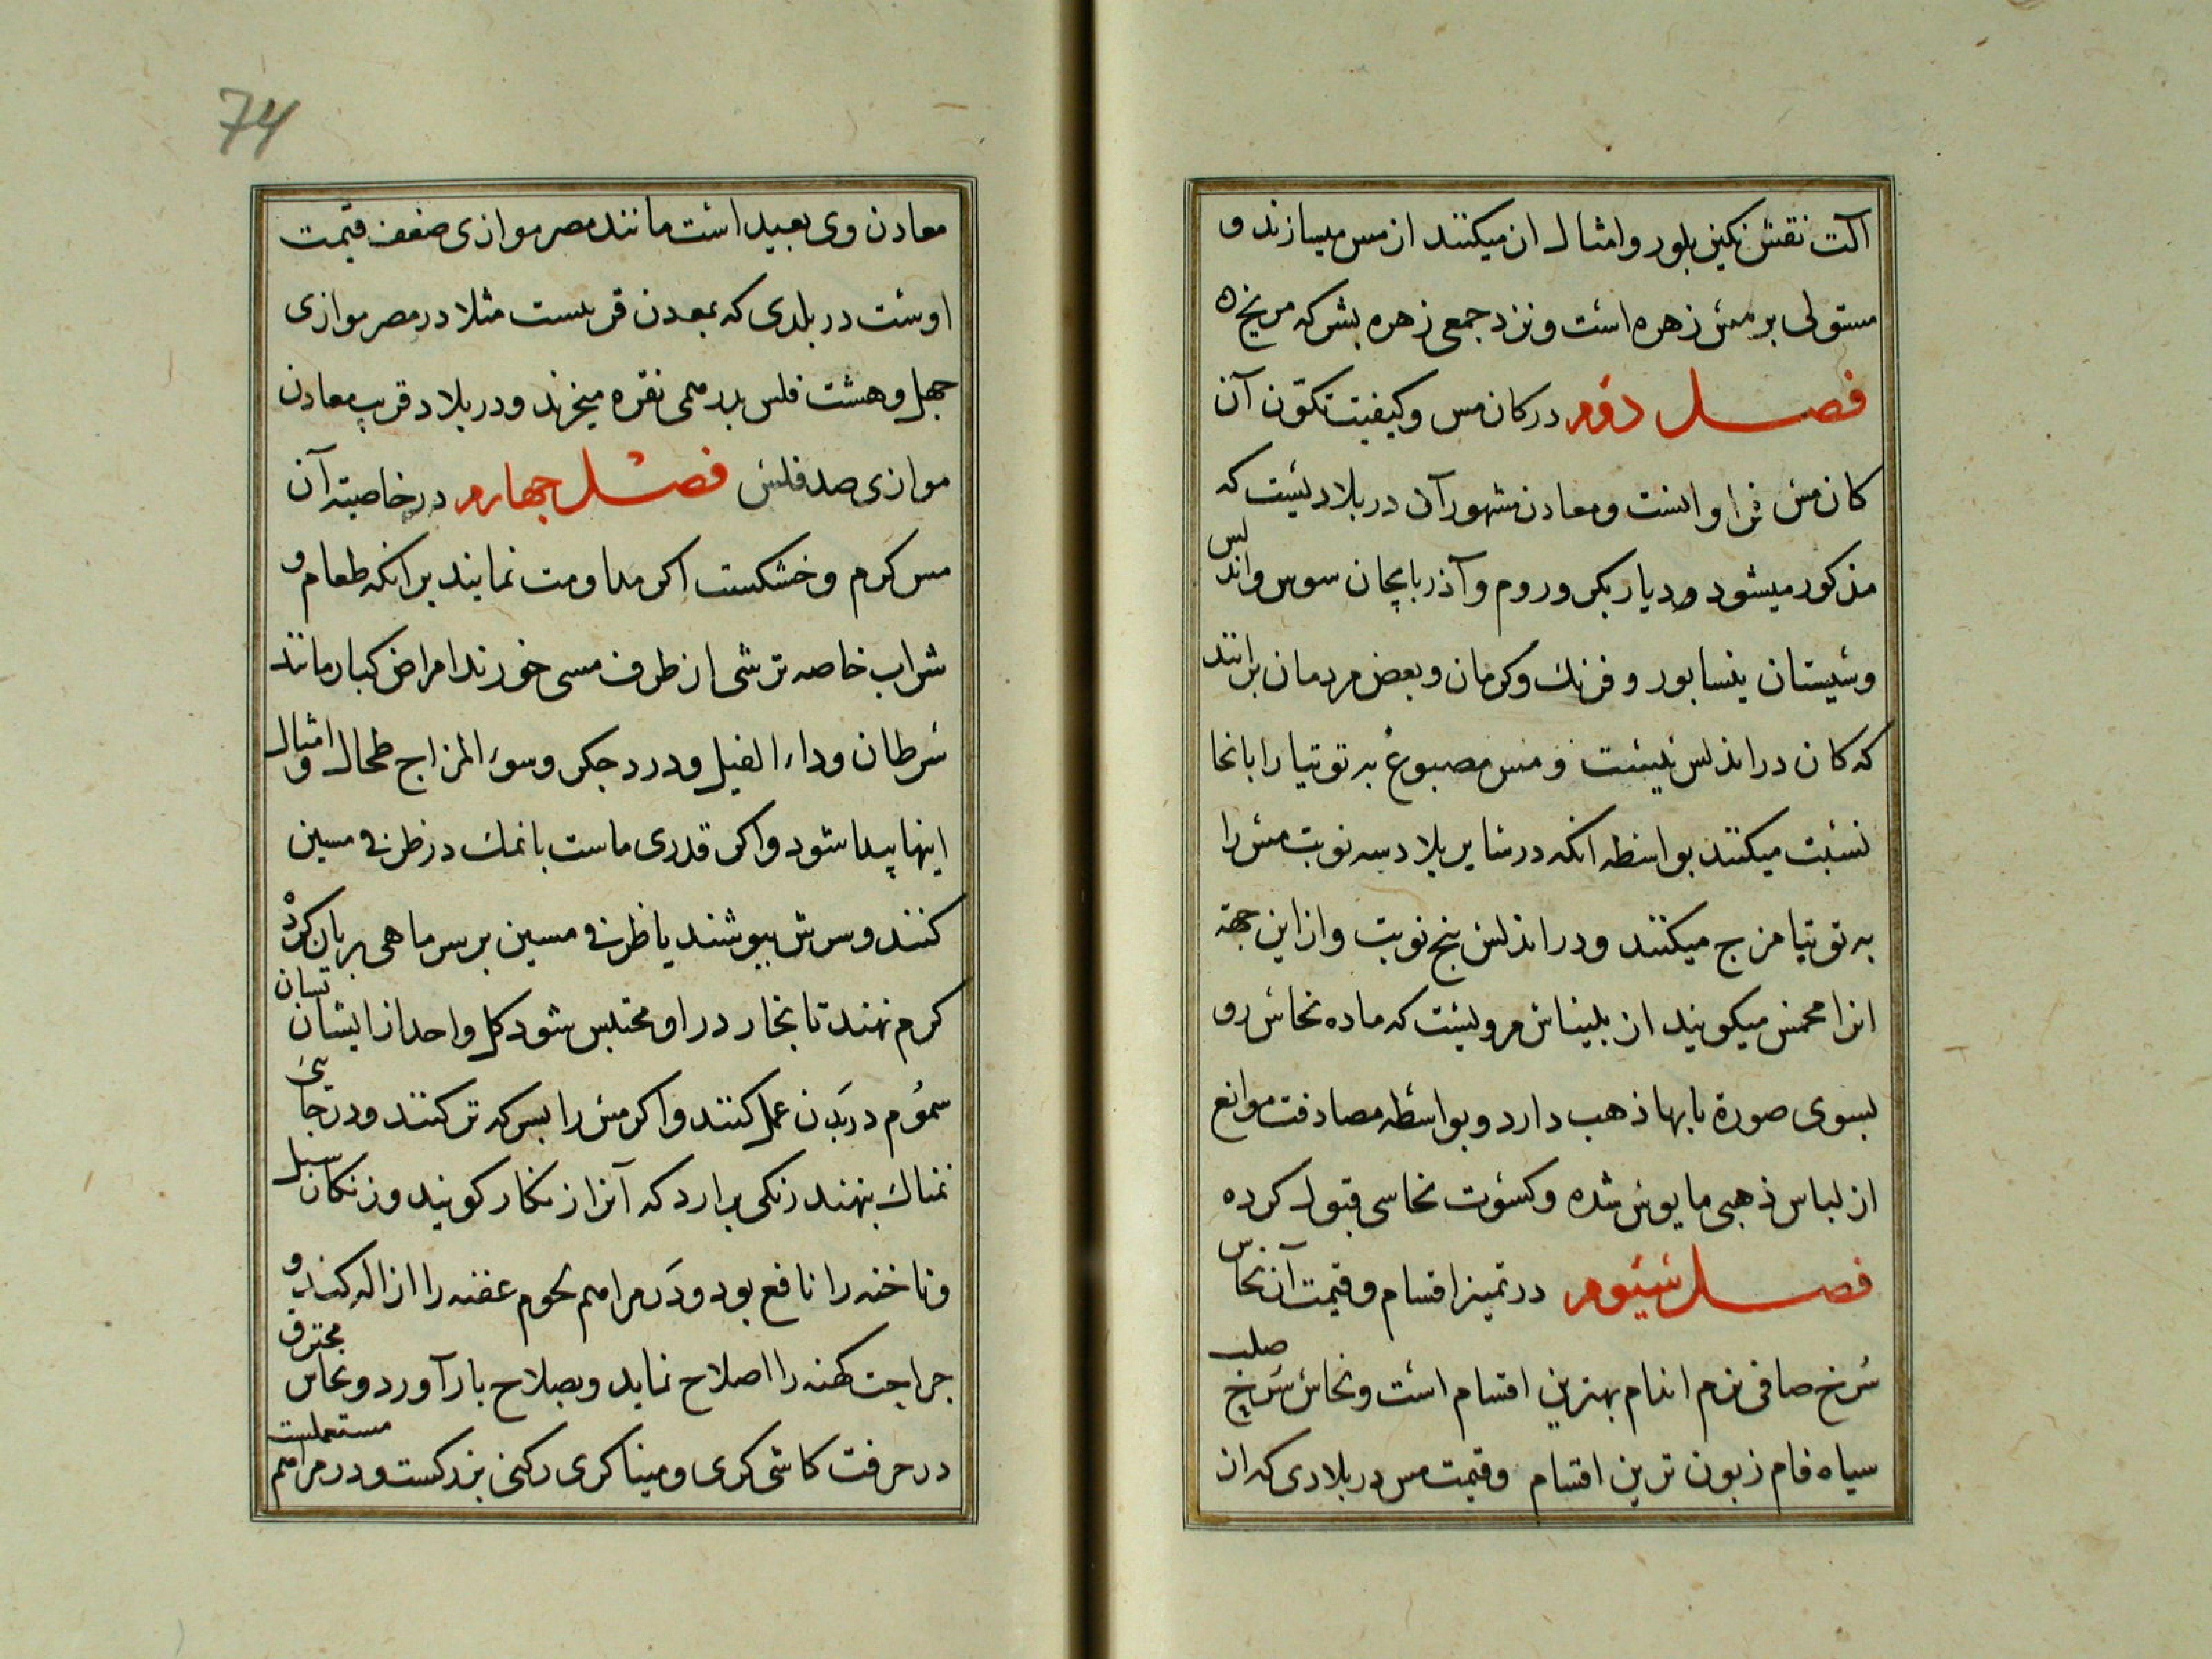 آلت نقش نکین بلور و امثال ان میکنند از مس میسازند و
مستولی بر مس زهره است و نزد جمعی زهره بشرکه مریخ ه
فصل دوم در کان مس و کیفیت تکوّن آن
کان مس فراوانست و معادن مشهور آن در بلادیست که
مذکور میشود در دیار بکر و روم و آذربایجان سوس و اندلس
و سیستان ینسابور و فرنک و کرمان و بعض مردمان برانند
که کان در اندلس نیست و مس مصبوغ به توتیا را بانجا
نسبت میکنند بواسطه انکه در سایر بلاد سه نوبت مس را
به توتیا مزج میکنند و در اندلس پنج نوبت و از این جهة
انرا مخمس میکویند از بلیناس مرویست که ماده نحاس رو
بسوی صورة با بها ذهب دارد و بواسطه مصادفت موانع
از لباس ذهبی مایوس شده و کسوت نحاسی قبول کرده
فصل سیوم در تمیز اقسام و قیمت آن نحاس
سرخ صافی نرم اندام بهترین اقسام است و نحاس سرخ صلب
سیاه فام زبون ترین اقسام و قیمت مس در بلادی که از
74
معادن وی بعید است مانند مصر موازی ضعف قیمت
اوست در بلدی که بمعدن قریست مثلا در مصر موازی
چهل و هشت فلس بدرهمی نقره میخرند و در بلاد قریب معادن
موازی صد فلس فصل چهارم در خاصیته آن
مس کرم و خشکست اکر مداومت نمایند بر انکه طعام و
شراب خاصه ترشی از ظرف مسی خورند امراض کبار مانند
سرطان و داء الفیل و درد جکر و سوء المزاج طحال و امثال
اینها پیدا شود و اکر قدری ماست با نمک در ظرفی مسین
کنند و سرش بپوشند یا ظرفی مسین بر سر ماهی بریان کرده
کرم نهند تا بخار در او محتبس شود کل واحد از ایشان تسان
سموم در بدن عمل کنند و اکر مس را بسرکه تر کنند و در جایی
نمناک بنهند زنکی برارد که آنرا زنکار کویند و زنکان سبل
و ناخنه را نافع بود و در مراهم لحوم عفنه را ازاله کند و
جراحت کهنه را اصلاح نماید و بصلاح باز آورد و نحاس محترق
در حرفت کاشی کری و مینا کری رکنی بزرکست و در مراهم مستعملست